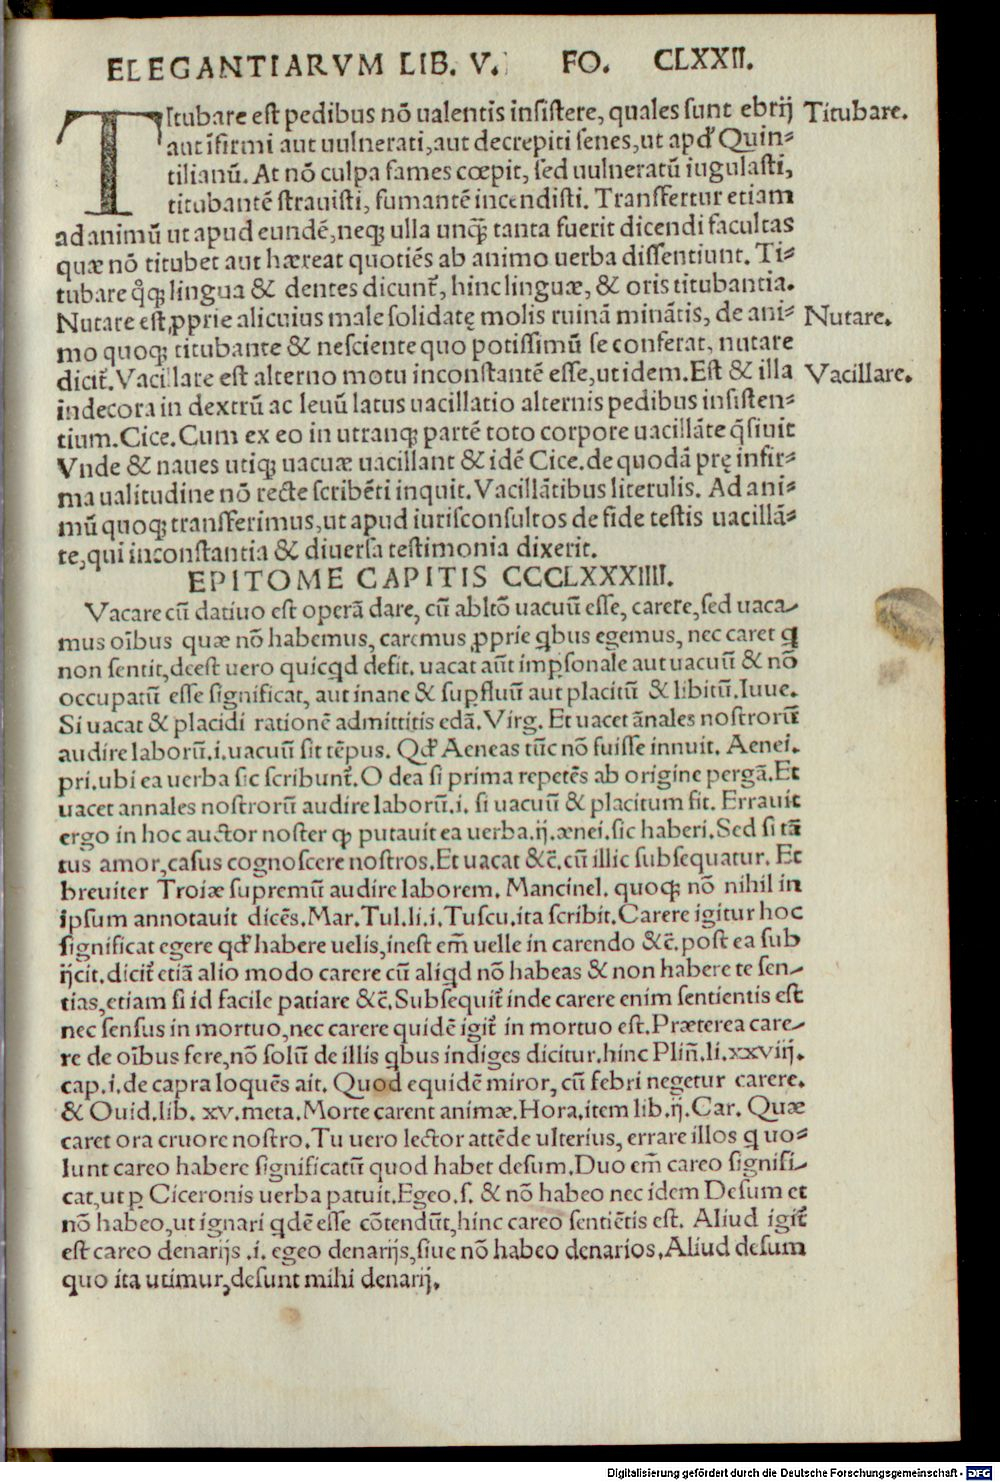 ELEGANTIARVM LIB. V. FO. CLXXII.
TItubare est pedibus nō ualentis insistere, quales sunt ebrij Titubare.
aut īfirmi aut uulnerati, aut decrepiti senes, ut apd' Quin⸗
tilianū. At nō culpa fames cœpit, sed uulneratū iugulasti,
titubantē strauisti, fumantē incendisti. Transfertur etiam
ad animū ut apud eundē, neq; ulla unq̄ꝫ tanta fuerit dicendi facultas
quæ nō titubet aut hæreat quotiēs ab animo uerba dissentiunt. Ti⸗
tubare qͦq; lingua & dentes dicunt᷑, hinc linguæ, & oris titubantia.
Nutare est ꝓprie alicuius male solidatę molis ruinā minātis, de ani⸗ Nutare.
mo quoq; titubante & nesciente quo potissimū se conferat, nutare
dicit᷑. Vacillare est alterno motu inconstantē esse, ut idem. Est & illa Vacillare.
indecora in dextrū ac leuū latus uacillatio alternis pedibus insisten⸗
tium. Cice. Cum ex eo in utranq; partē toto corpore uacillāte q̄siuit
Vnde & naues utiq; uacuæ uacillant & idē Cice. de quodā prę infir⸗
ma ualitudine nō recte scribēti inquit. Vacillātibus literulis. Ad ani⸗
mū quoq; transferimus, ut apud iurisconsultos de fide testis uacillā⸗
te, qui inconstantia & diuersa testimonia dixerit.
EPITOME CAPITIS CCCLXXXIIII.
Vacare cū datiuo est operā dare, cū abltō uacuū esse, carere, sed uaca⸗
mus oībus quæ nō habemus, caremus ꝓprie qbus egemus, nec caret q
non sentit, deest uero quicqd desit. uacat aūt imꝑsonale aut uacuū & nō
occupatū esse significat, aut inane & suꝑfluū aut placitū & libitū. Iuue.
Si uacat & placidi rationē admittitis edā. Virg. Et uacet ānales nostrorū
audire laborū. i. uacuū sit tēpus. Qd' Aeneas tūc nō fuisse innuit. Aenei.
pri. ubi ea uerba sic scribunt᷑. O dea si prima repetēs ab origine pergā. Et
uacet annales nostrorū audire laborū. i. si uacuū & placitum sit. Errauit
ergo in hoc auctor noster ꝙ putauit ea uerba. ij. ænei. sic haberi. Sed si tā
tus amor, casus cognoscere nostros. Et uacat &c̄. cū illic subsequatur. Et
breuiter Troiæ supremū audire laborem. Mancinel. quoq; nō nihil in
ipsum annotauit dicēs. Mar. Tul. li. i. Tuscu. ita scribit. Carere igitur hoc
significat egere qd' habere uelis, inest em̄ uelle in carendo &c̄. post ea sub
ijcit. dicit᷑ etiā alio modo carere cū aliqd nō habeas & non habere te sen⸗
tias, etiam si id facile patiare &c̄. Subsequit᷑ inde carere enim sentientis est
nec sensus in mortuo, nec carere quidē igit᷑ in mortuo est. Præterea care⸗
re de oībus fere, nō solū de illis qbus indiges dicitur. hinc Plin̄. li. xxviij.
cap. i. de capra loquēs ait. Quod equidē miror, cū febri negetur carere.
& Ouid. lib. xv. meta. Morte carent animæ. Hora. item lib. ij. Car. Quæ
caret ora cruore nostro. Tu uero lector attēde ulterius, errare illos q uo⸗
lunt careo habere significatū quod habet desum. Duo em̄ careo signifi⸗
cat, ut ꝑ Ciceronis uerba patuit. Egeo. s. & nō habeo nec idem Desum et
nō habeo, ut ignari qdē esse cōtendūt, hinc careo sentiētis est. Aliud igit᷑
est careo denarijs .i. egeo denarijs, siue nō habeo denarios. Aliud desum
quo ita utimur, desunt mihi denarij.
Digitalisierung gefördert durch die Deutsche Forschungsgemeinschaft - DFG